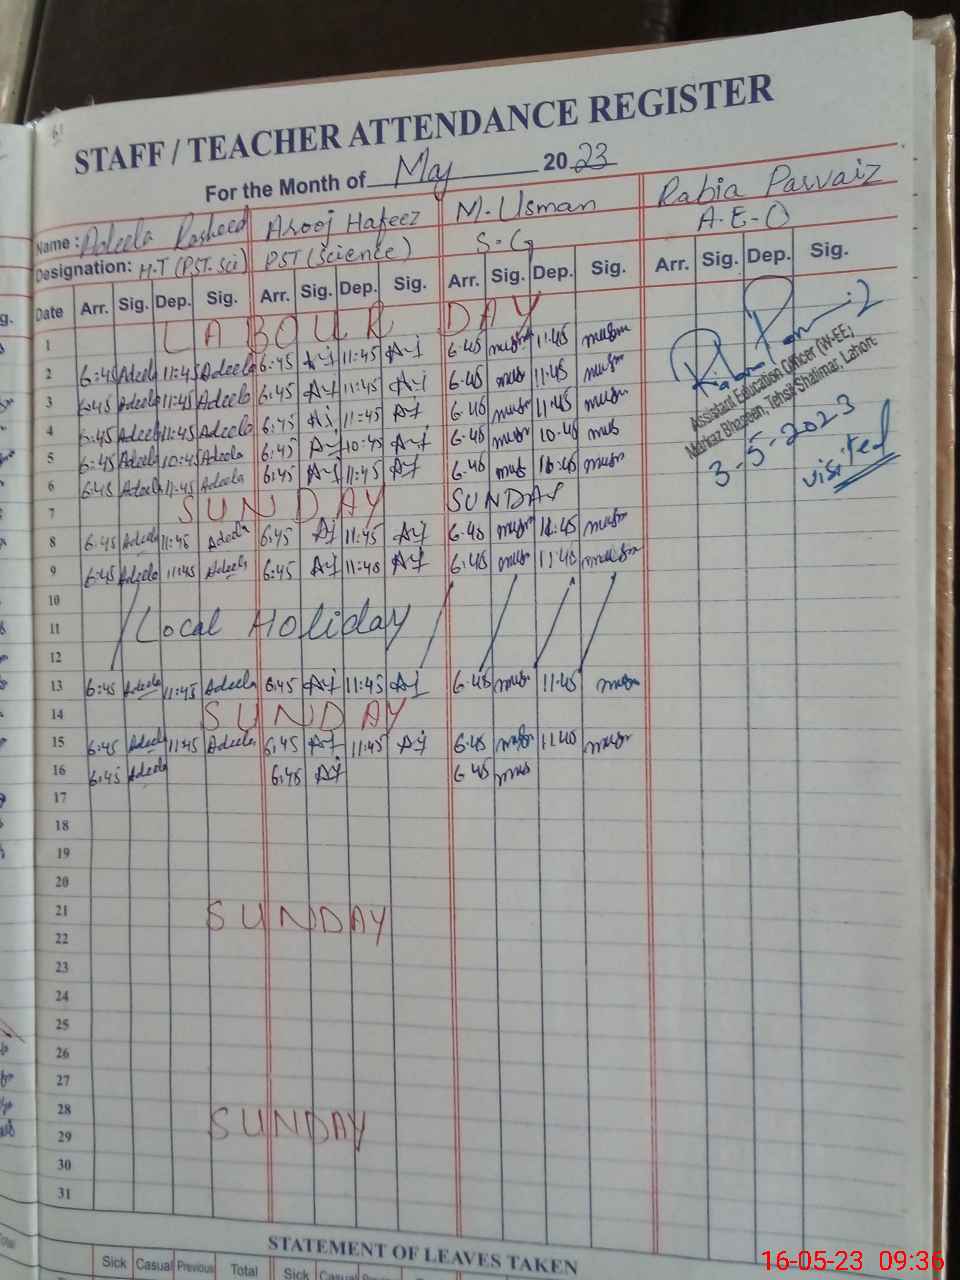 STAFF / TEACHER ATTENDANCE REGISTER
For the Month of May 2023
Name: Adeela Rasheed Arooj Hafeez M. Usman Rabia Parvaiz
Designation: H.T (PST. Sci) PST (Science) S.G A.E.O
Date Arr. Sig. Dep. Sig. Arr. Sig. Dep. Sig. Arr. Sig. Dep. Sig. Arr. Sig. Dep. Sig.
1 LABOUR DAY
2 6:45 Adeela 11:45 Adeela 6:45 11:45 6:45 11:45
3 6:45 Adeela 11:45 Adeela 6:45 11:45 6:45 11:45
4 6:45 Adeela 11:45 Adeela 6:45 11:45 6:45 11:45
5 6:45 Adeela 10:45 Adeela 6:45 10:45 6:45 10:45
6 6:45 Adeela 11:45 Adeela 6:45 11:45 6:45
7 SUNDAY SUNDAY
8 6:45 Adeela 11:45 Adeela 6:45 11:45 6:45 11:45
9 6:45 Adeela 11:45 Adeela 6:45 11:45 6:45 11:45
10
11 Local Holiday
12
13 6:45 Adeela 11:45 Adeela 6:45 11:45 6:45 11:45
14 SUNDAY
15 6:45 Adeela 11:45 Adeela 6:45 11:45 6:45 11:45
16 6:45 Adeela 6:45 6:45
17
18
19
20
21 SUNDAY
22
23
24
25
26
27
28 SUNDAY
29
30
31
Assistant Education Officer (W-EE)
Markaz Bhaseen, Tehsil Shalimar, Lahore
3-5-2023
visited
STATEMENT OF LEAVES TAKEN
Sick Casual Previous Total Sick Casual
16-05-23 09:36